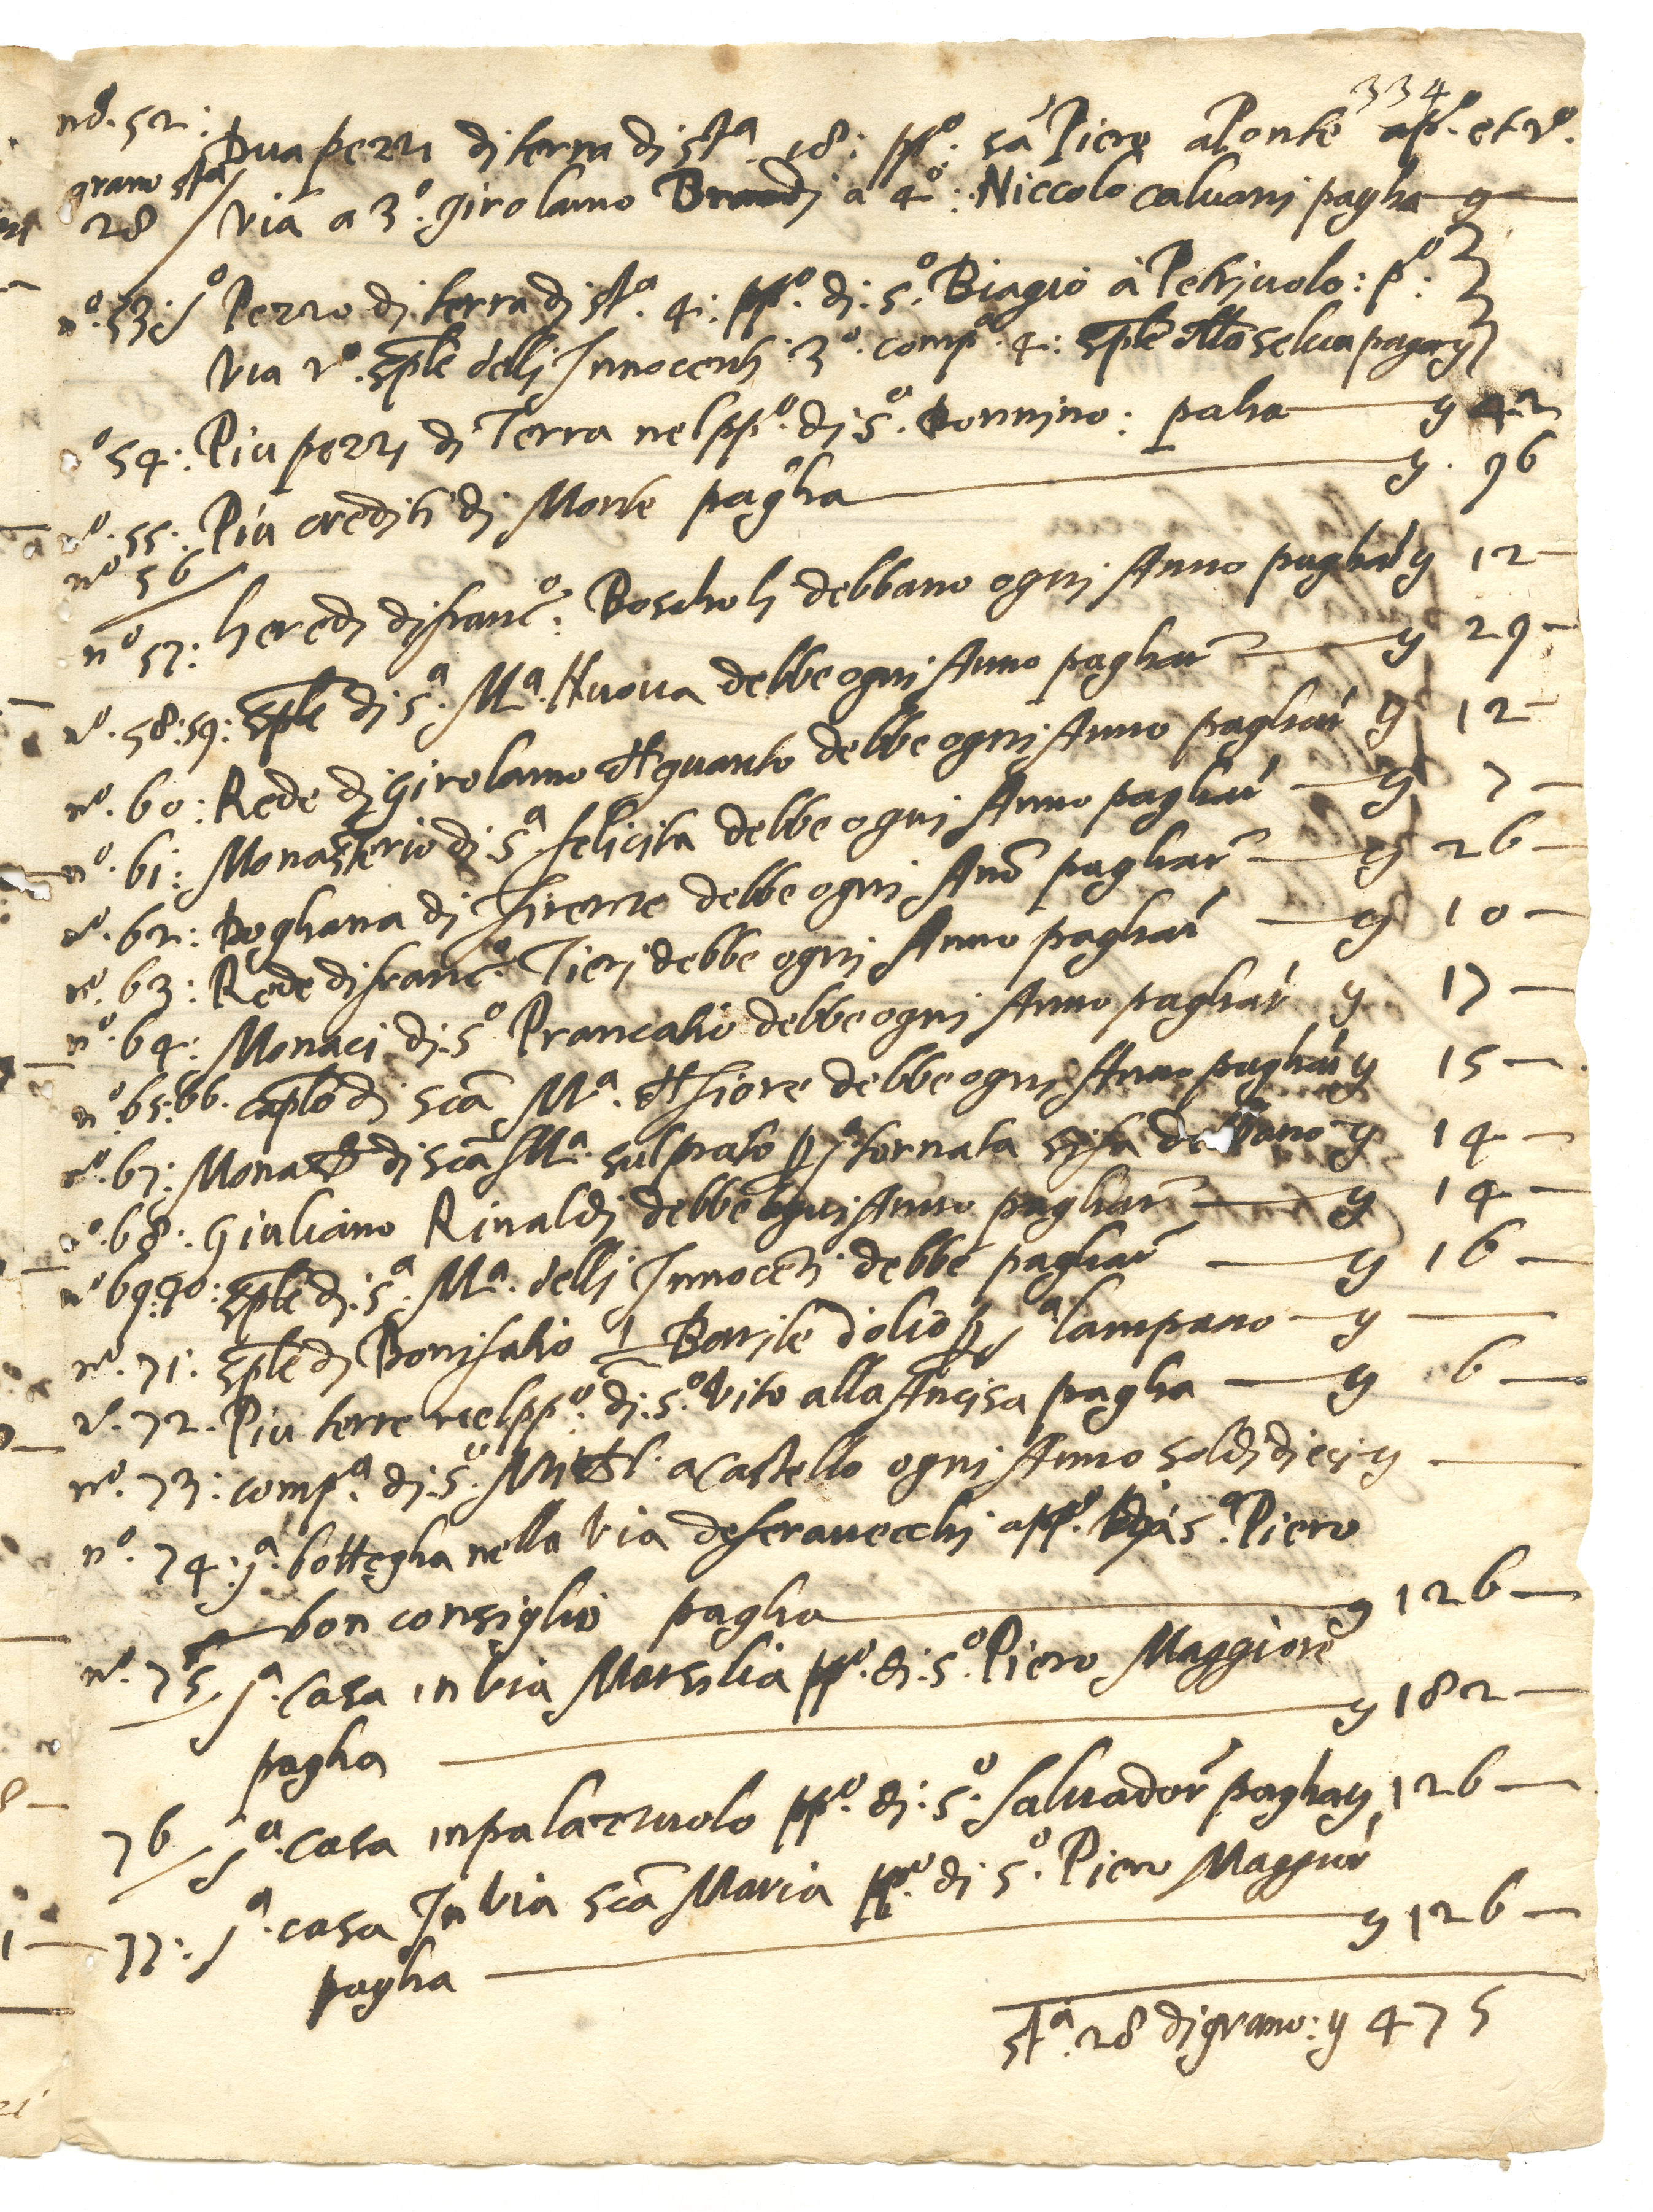 334
nº. 52: Dua pezzi di terra di stª. 18: ppº. sã Piero a Ponte a pº. et 2º.
grano stª
28 / via a 3º. girolamo Brandi a 4º: Niccolo caluani pagha y
nº. 53: jº Pezzo di terra di stª. 4: ppº. di: sº. Biagio à Petriuolo: pº:
via 2º. sple delli Innocenti 3º. compª. 4: sple della selua paga y
nº 54: Piu pezzi di Terra nel ppº. di sº. Donnino: paha y 42
nº. 55: Piu crediti di Monte pagha y. 76
nº 56
nº 57: heredi di francº: Boscholi debbano ogni Anno paghar y 12
nº. 58:59: sple di sª. Mª. Nuova debbe ogni Anno paghar y 29
nº. 60: Rede di girolamo Alquanto debbe ogni Anno paghar y 12
nº. 61: Monasterio di sª felicita debbe ogni Anno paghar y 7
nº. 62: Doghana di Firenze debbe ogni Ano paghar y 26
nº. 63: Rede di francº. Tieri debbe ogni Anno paghar y 10
nº. 64: Monaci di: sº Prancatio debbe ogni Anno paghar y 17
nº. 65:66. caplo di scã Mª. del fiore debbe ogni Anno paghar y 15
nº. 67: Monastº di scã Mª. sul prato p jª tornata si fa y 14
nº. 68: Giuliano Rinaldi debbe ogni Anno paghar y 14
nº 69:70: sple di: sª. Mª. delli Innocenti debbe paghar y 16
nº. 71: sple di Bonifatio 1/2 Barile d'olio p jª lampano y
nº. 72. Piu terre nel ppº. di: sº. Vito alla Ancisa pagha y 6
nº. 73: compª. di: sº. Michl. a castello ogni Anno soldi dieci y
nº. 74: jª. bottegha nella via de ferauecchi a ppº. di sº. Piero
bon consiglio pagha y 126
nº. 75 jª. casa in via Marsilia ppº. di: sº. Piero Maggiore
pagha y 182
76 jª. casa in palazzuolo ppº. di: sº. saluador pagha y 126
77: jª. casa In via scã Maria ppº. di sº. Piero Maggior
pagha y 126
stª. 28 di grano: y 475